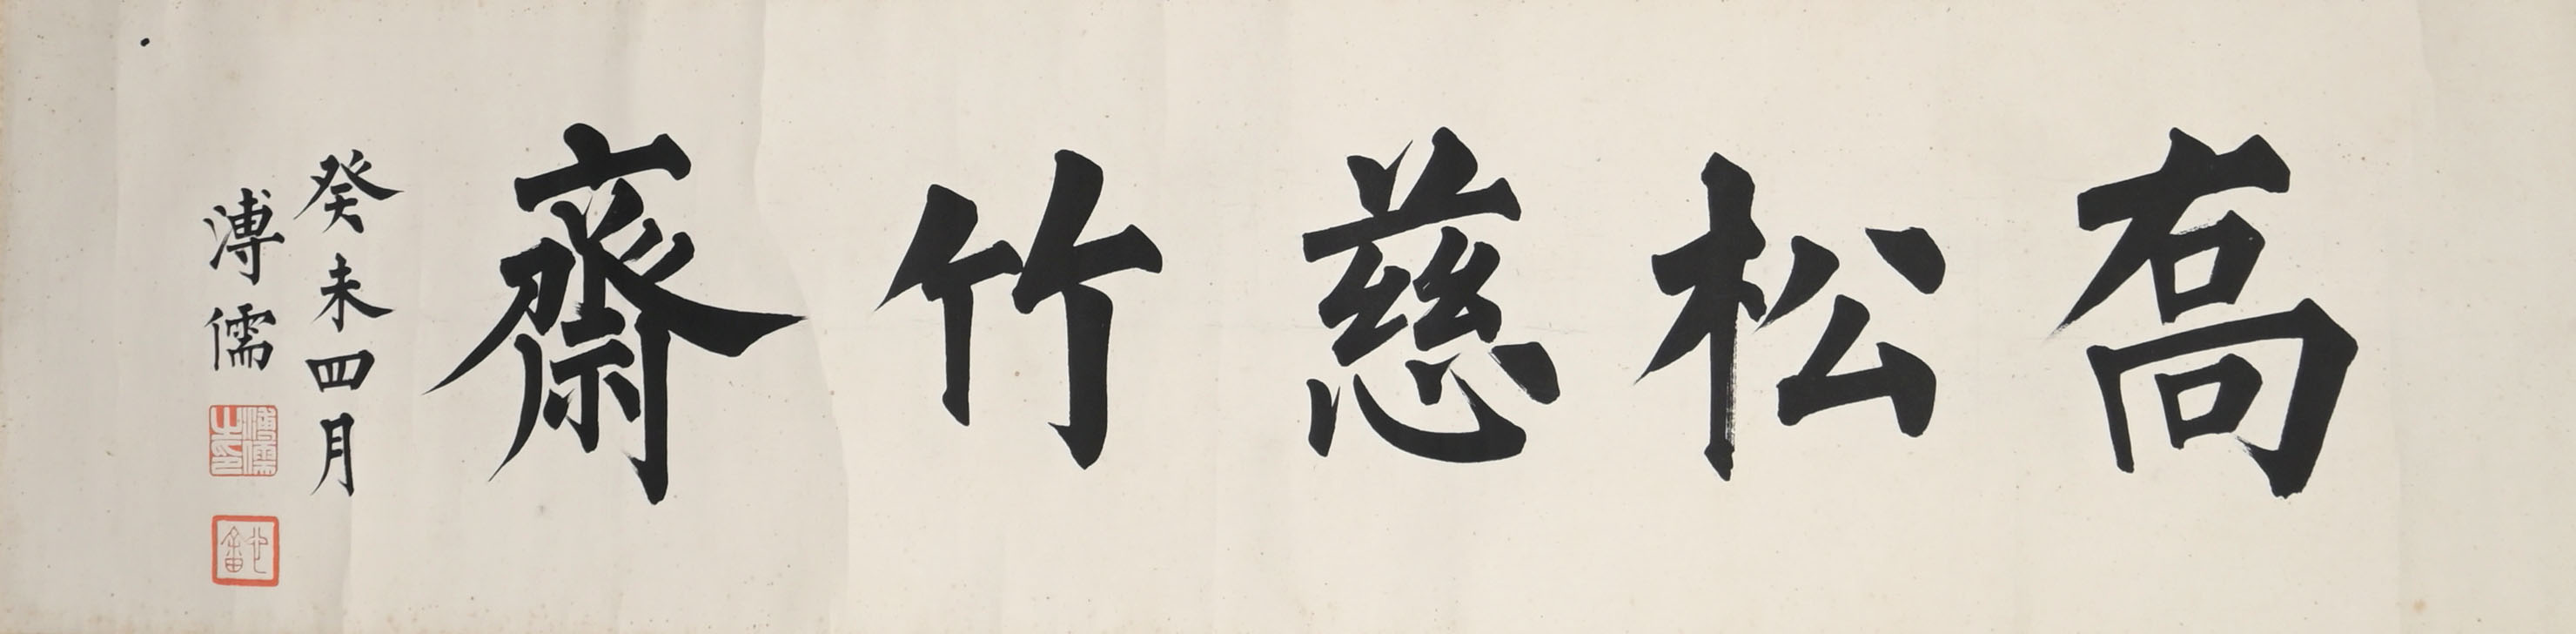 喬松慈竹齋
癸未四月
溥儒
溥儒之印
心畬